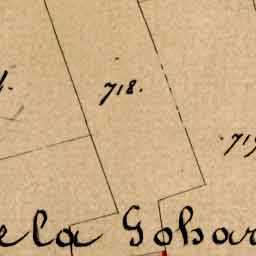 718.
719
ela Gohar